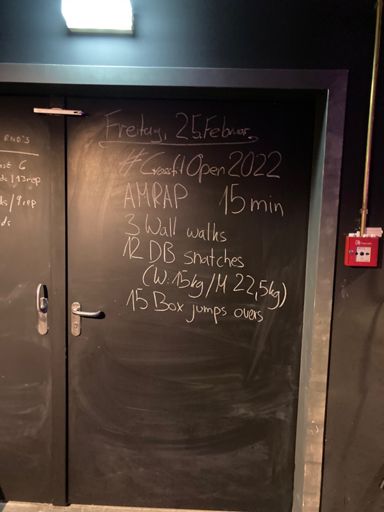 RND'S
6
Freitag, 25. Februar
#CrossfitOpen2022
AMRAP 15 min
3 Wall walks
12 DB snatches
(W: 15kg/M 22,5kg)
15 Box jumps overs